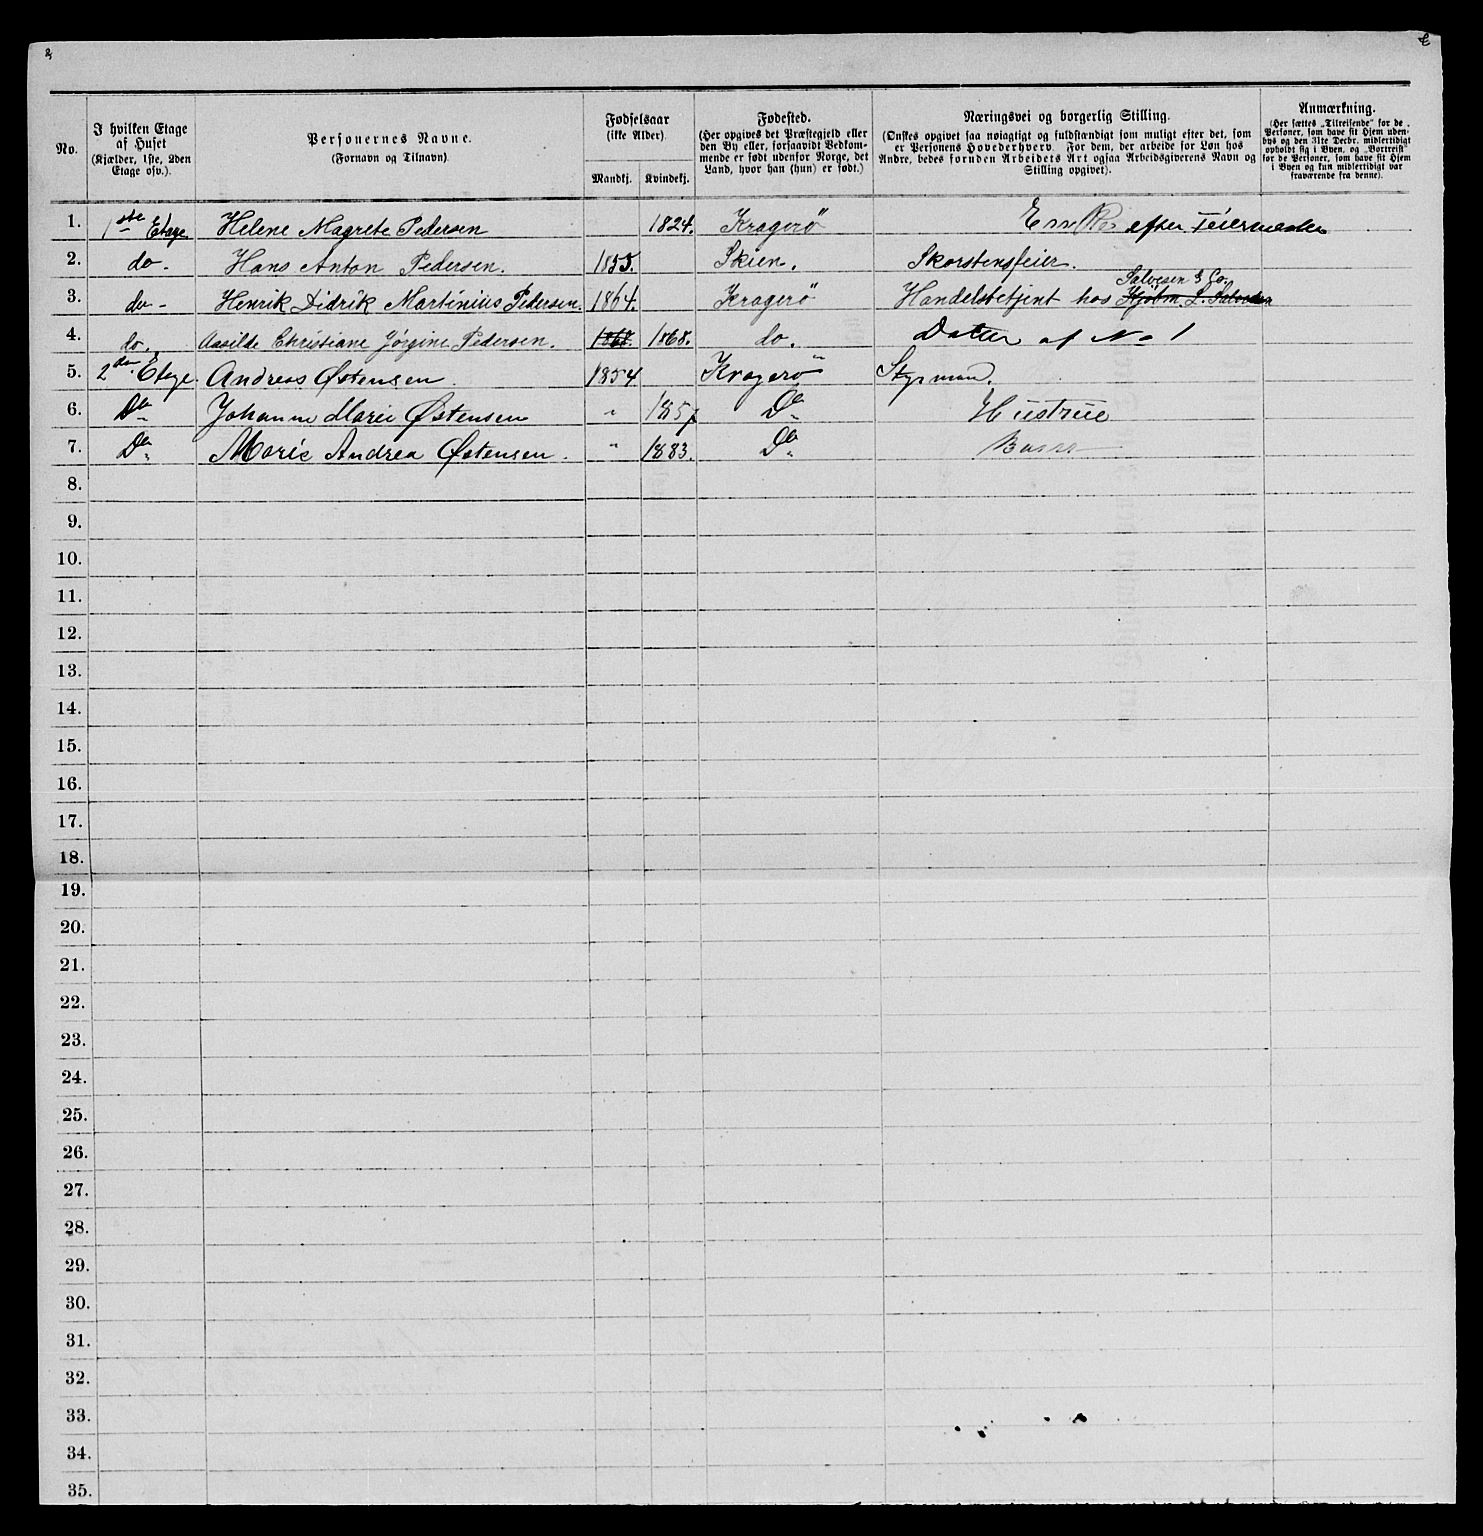 No.
I hvilken Etage
af Huset
(Kjælder, 1ste, 2den
Etage osv.).
Personernes Navne.
(Fornavn og Tilnavn).
Fødselsaar
(ikke Alder).
Mandkj. Kvindekj.
Fødested.
(Her opgives det Præstegjeld eller
den By eller, forsaavidt Vedkom-
mende er født udenfor Norge, det
Land, hvor han (hun) er født.)
Næringsvei og borgerlig Stilling.
(Ønskes opgivet saa nøiagtigt og fuldstændigt som muligt efter det, som
er Personens Hovederhverv. For dem, der arbeide for Løn hos
Andre, bedes foruden Arbeidets Art ogsaa Arbeidsgiverens Navn og
Stilling opgivet).
Anmærkning.
(Her sættes „Tilreisende“ for de
Personer, som have sit Hjem uden-
bys og den 31te Decbr. midlertidigt
opholdt sig i Byen, og „Bortreist“
for de Personer, som have sit Hjem
i Byen og kun midlertidigt var
fraværende fra denne).
1. 1ste Etage Helene Magrete Pedersen 1824. Kragerö Enke efter Feiermester
2. do. Hans Anton Pedersen. 1855. Skien. Skorstensfeier.
Salvesen & Co.
3. do - Henrik Didrik Martinius Pedersen. 1864. Kragerö Handelsbetjent hos
4. do. Aasilde Christiane Jörgine Pedersen. 1868. 1868. do. Datter af No 1
5. 2den Etage Andreas Østensen. 1854 Kragerö Styrmand.
6. Do Johanne Marie Østensen " 1857 Do Hustrue
7. Do Marie Andrea Østensen. " 1883. Do Barn
8.
9.
10.
11.
12.
13.
14.
15.
16.
17.
18.
19.
20.
21.
22.
23.
24.
25.
26.
27.
28.
29.
30.
31.
32.
33.
34.
35.